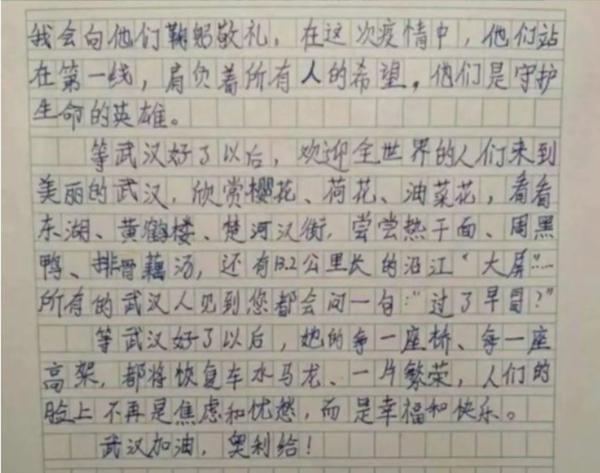 我会向他们鞠躬敬礼。在这次疫情中，他们站
在第一线，肩负着所有人的希望。他们是守护
生命的英雄。
等武汉好了以后，欢迎全世界的人们来到
美丽的武汉，欣赏樱花、荷花、油菜花，看看
东湖、黄鹤楼、楚河汉街，尝尝热干面、周黑
鸭、排骨藕汤，还有13.2公里长的沿江“大屏”……
所有的武汉人见到您都会问一句：“过了早冒？”
等武汉好了以后，她的每一座桥、每一座
高架，都将恢复车水马龙、一片繁荣，人们的
脸上不再是焦虑和忧愁，而是幸福和快乐。
武汉加油，奥利给！